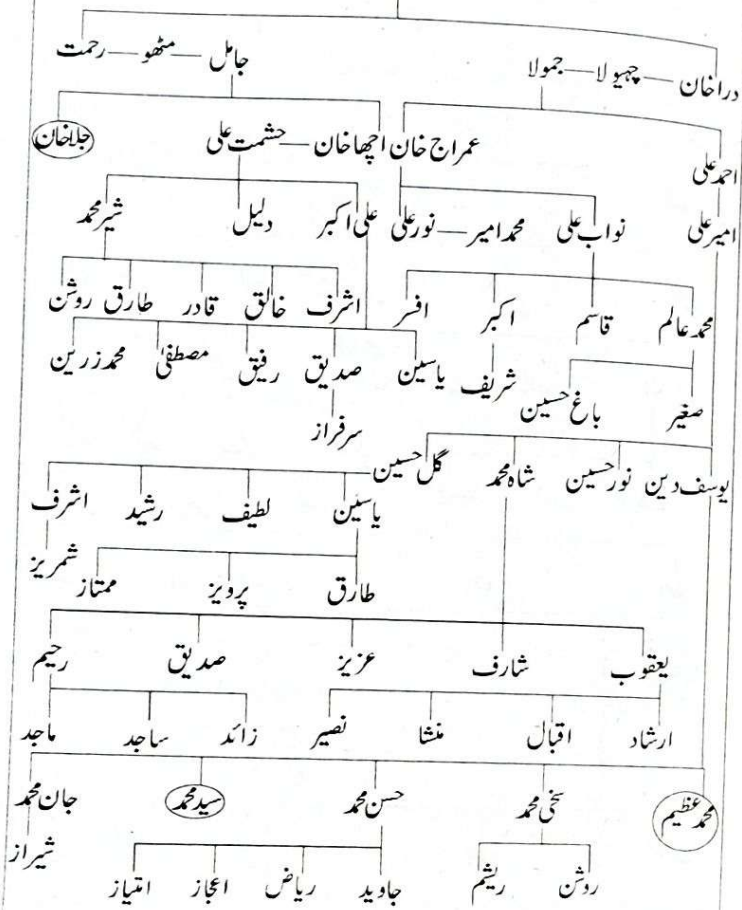 دراخان چہیولا جمولا جامل مٹھو رحمت
احمد علی عمراج خان اچھا خان حشمت علی جلاخان
امیر علی نواب علی محمد امیر نور علی علی اکبر دلیل شیر محمد
محمد عالم قاسم اکبر افسر اشرف خالق قادر طارق روشن
صغیر باغ حسین شریف یاسین صدیق رفیق مصطفیٰ محمد زرین
سرفراز
یوسف دین نور حسین شاہ محمد گل حسین
یاسین لطیف رشید اشرف
طارق پرویز ممتاز شمریز
یعقوب شارف عزیز صدیق رحیم
ارشاد اقبال منشا نصیر زائد ساجد ماجد
محمد عظیم سخی محمد حسن محمد سید محمد جان محمد
روشن ریشم جاوید ریاض اعجاز امتیاز شیراز